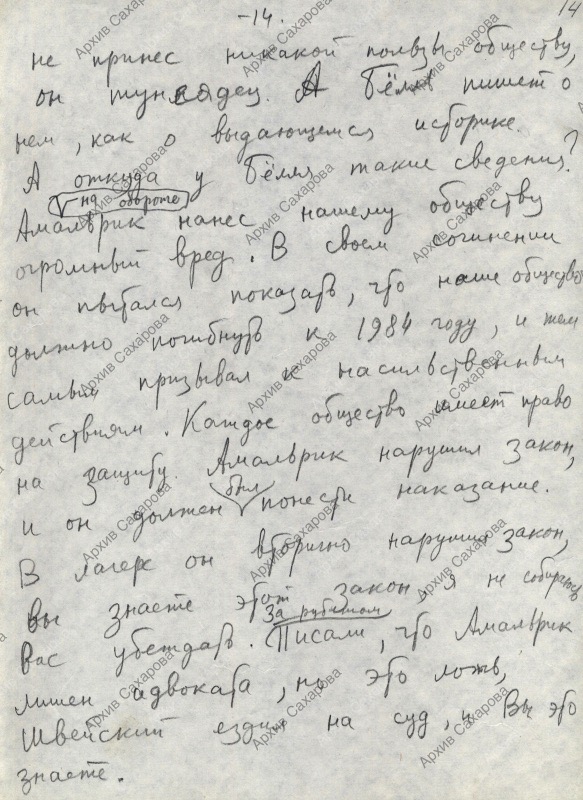 -14.
14
не принес никакой пользы обществу,
он тунеядец. А Бёлль пишет о
нем, как о выдающемся историке.
А откуда у Бёлля такие сведения?
на обороте
Амальрик нанес нашему обществу
огромный вред. В своем сочинении
он пытался показать, что наше общество
должно погибнуть к 1984 году, и тем
самым призывал к насильственным
действиям. Каждое общество имеет право
на защиту. Амальрик нарушил закон,
был
и он должен понести наказание.
В лагере он вторично нарушил закон,
вы знаете этот закон, я не собираюсь
За рубежом
Вас убеждать. Писали, что Амальрик
лишен адвоката, но это ложь,
Швейский ездил на суд, и Вы это
знаете.
Архив Сахарова